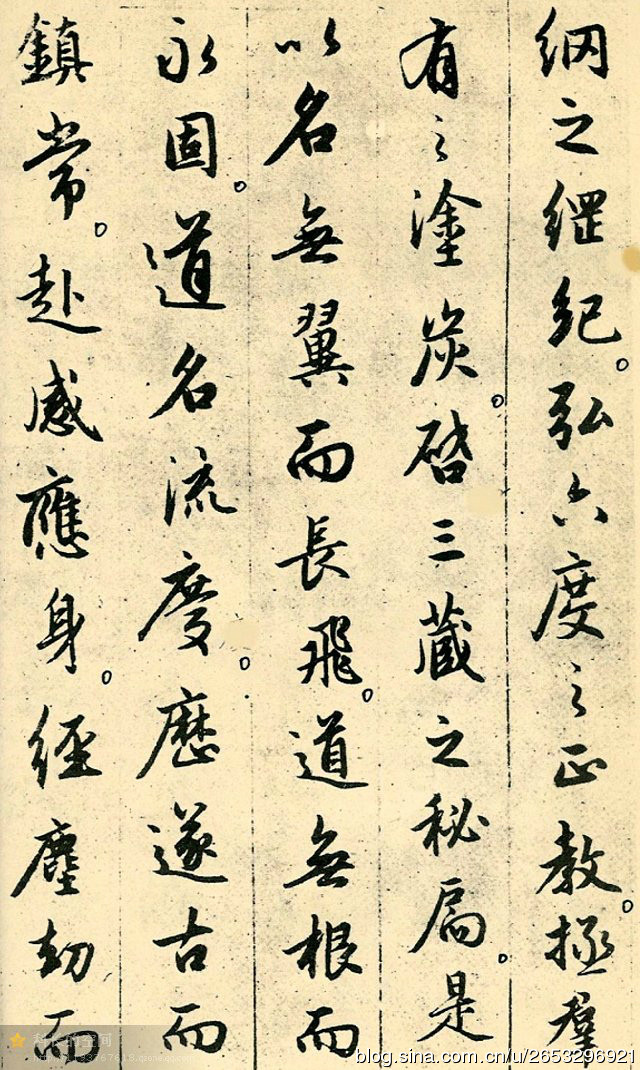 網之綱紀。弘六度之正教。拯羣
有之塗炭。啓三藏之秘扃。是
以名無翼而長飛。道無根而
永固。道名流慶。歷遂古而
鎮常。赴感應身。經塵劫而
blog.sina.com.cn/u/2653296921